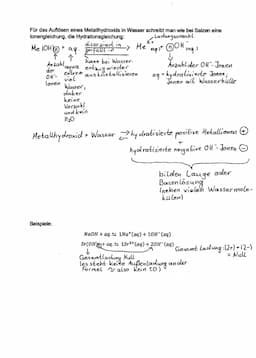 Für das Auflösen eines Metallhydroxids in Wasser schreibt man wie bei Salzen eine
Ionengleichung, die Hydrationsgleichung:
Ladungszahl
Me(OH) + aq. Me aq. + OH⁻ aq.
Anzahl der OH⁻ Ionen
Wasser, daher keine Vorzahl und kein H₂O
kann bei Wasser
auskristallisieren
Anzahl der OH⁻-Ionen
aq = hydratisierte Ionen,
Ionen mit Wasserhülle
Metallhydroxid + Wasser ⇌ hydratisierte positive Metallionen ⊕ +
hydratisierte negative OH⁻-Ionen ⊖
bilden Lauge oder
Basenlösung
(neben vielen Wassermole-
külen)
Beispiele:
NaOH + aq ⇆ 1Na⁺(aq) + 1OH⁻(aq)
Sr(OH)₂ + aq ⇆ 1Sr²⁺(aq) + 2OH⁻(aq)
Gesamtladung: (2+) + (2-)
= Null
Gesamtladung Null
(es steht keine Außenladung an der
Formel ~ also kein (0))